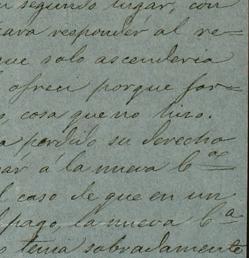 segundo lugar, con
responder al re-
que solo ascenderia
porque for-
cosa que no hizo.
perdido su derecho
á la nueva Cᵃ
caso de que en un
pago, la nueva Cᵃ
tenia sobradamente